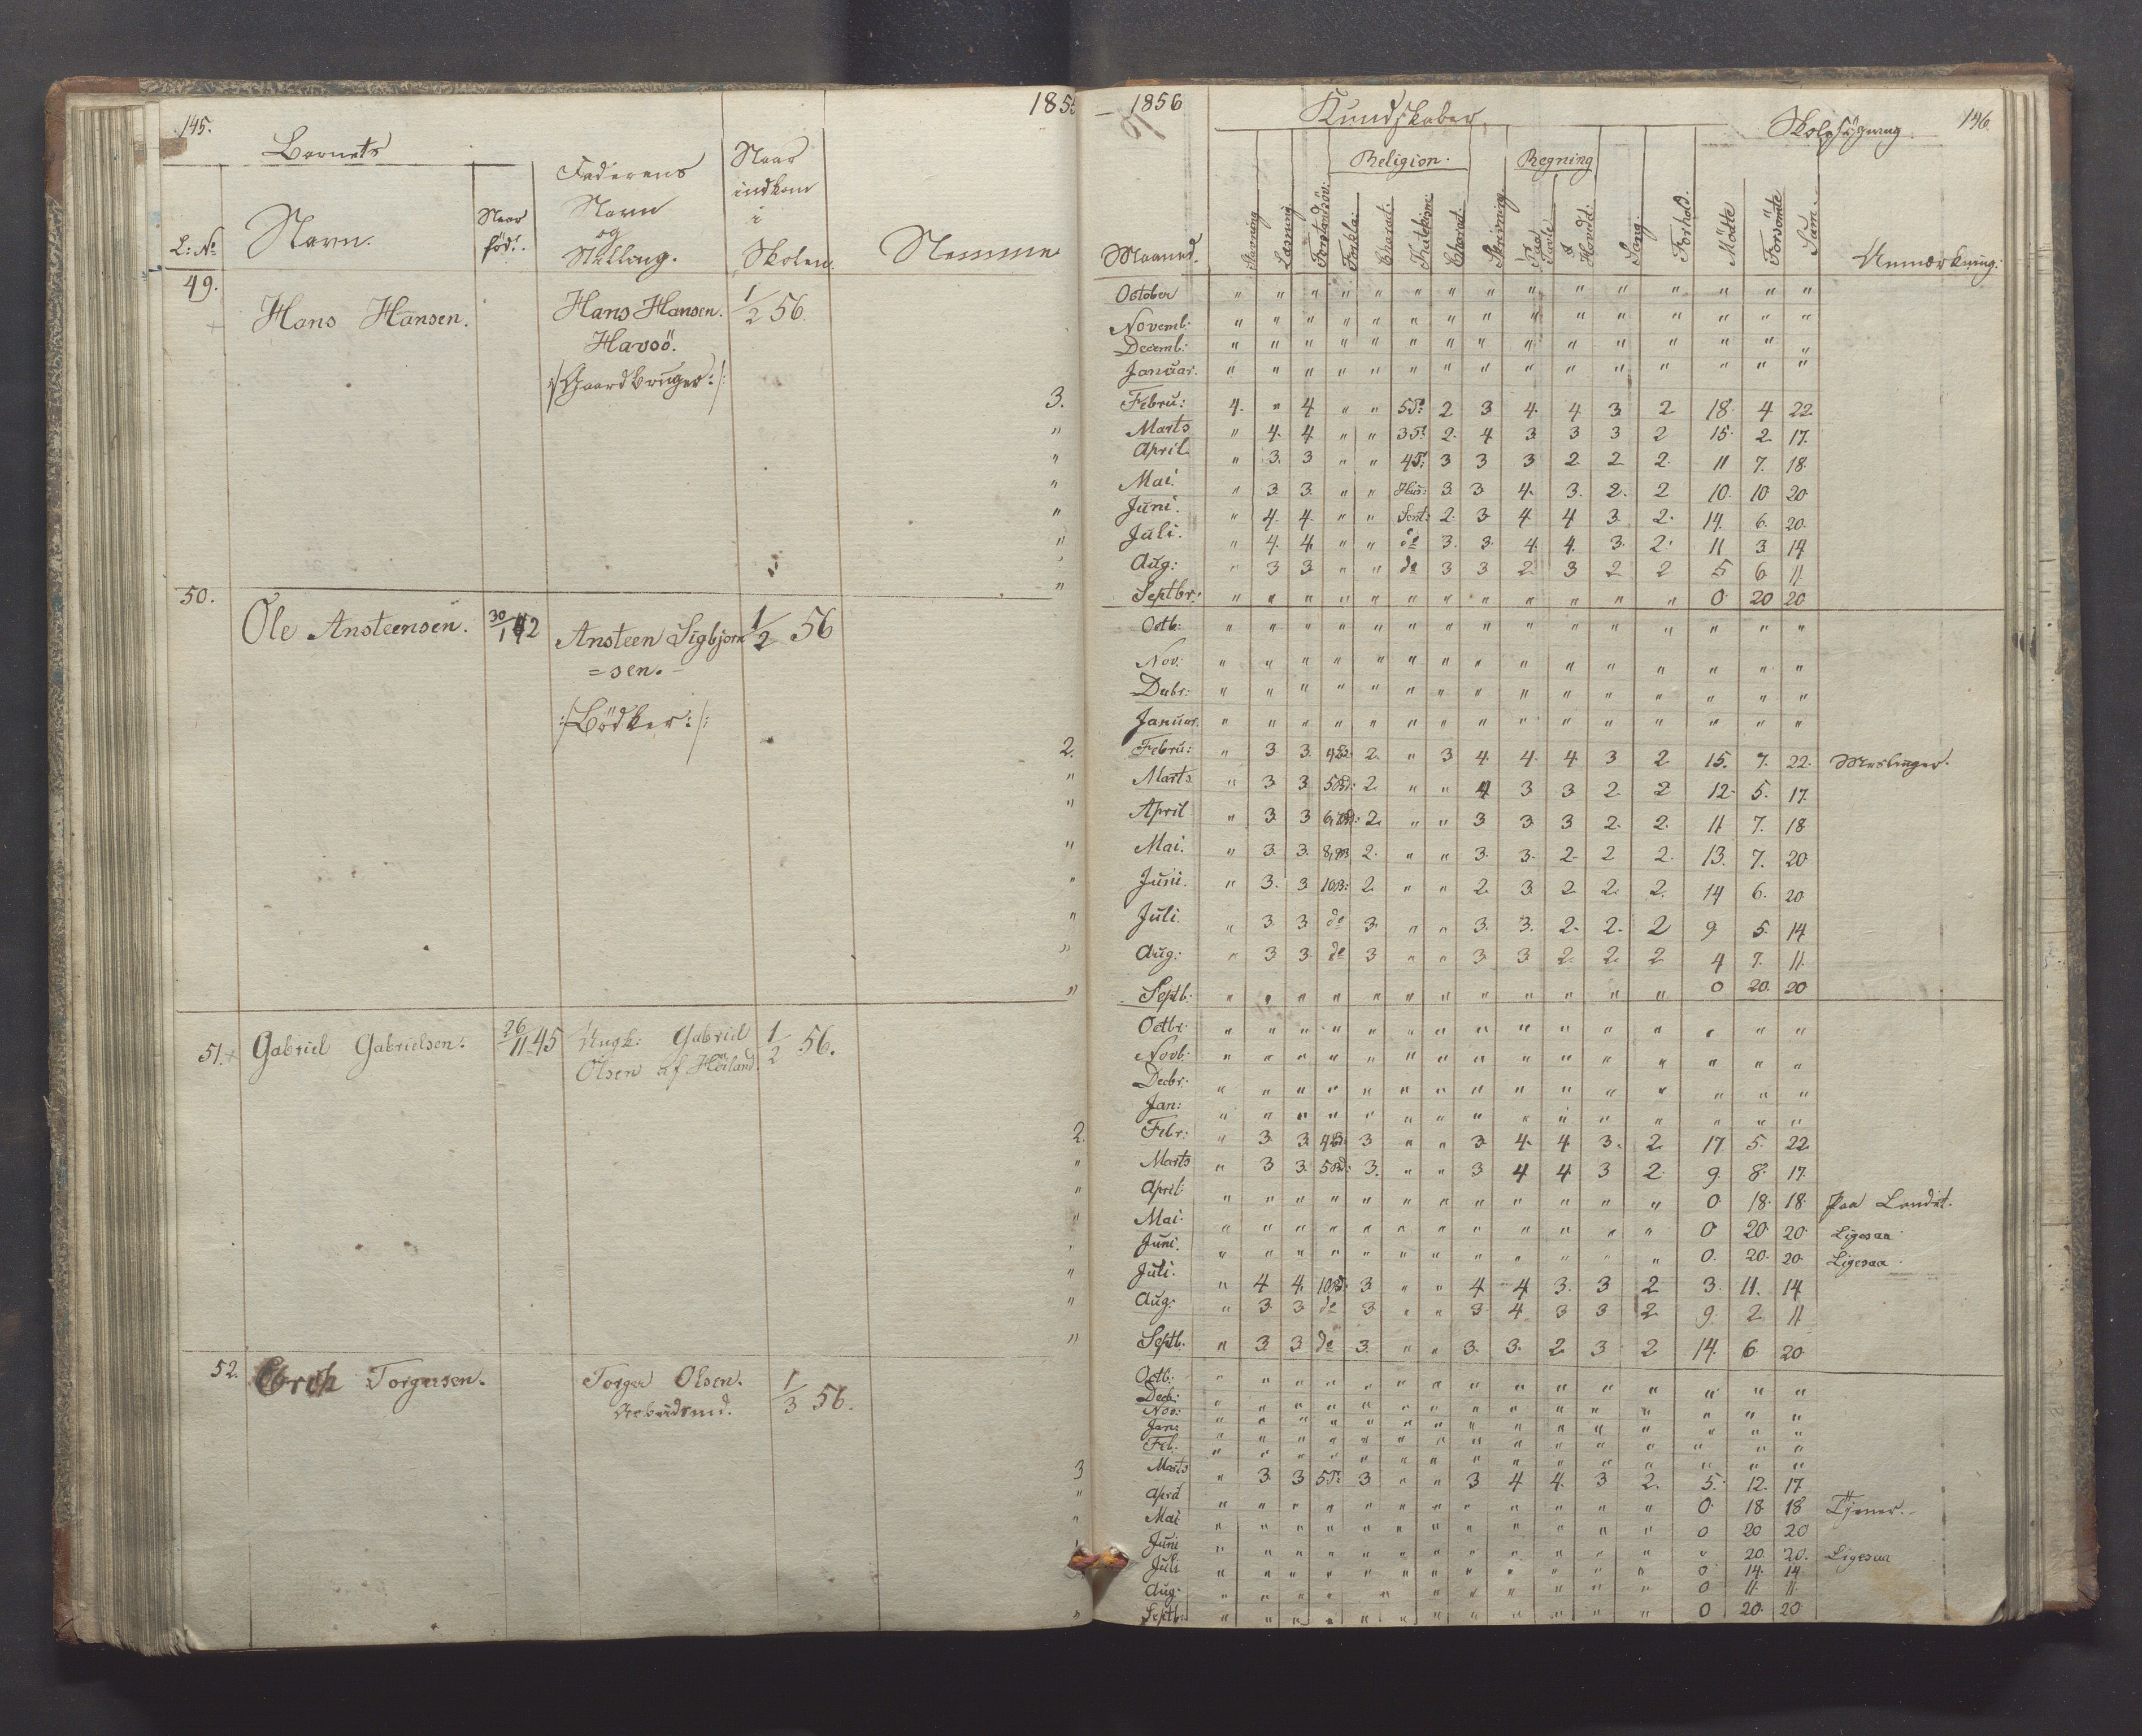 145.
1855
Barnets
L: No
Navn.
Naar
föd:
Faderens
Navn
og
Stilling.
Naar
indkom
i
Skolen.
Nemme
49.
Hans Hansen.
Hans Hansen.
Havsö.
/:Gaardbruger:/
1/2 56.
3.
"
"
"
"
"
"
"
50.
Ole Ansteensen.
30/1 42
Ansteen Sigbjorn
=sen.
/:Bödker:/
1/2 56
2.
"
"
"
"
"
"
"
51.+
Gabriel Gabrielsen.
26/11 45
Ungk: Gabriel
Olsen af Höiland.
1/2 56.
2.
"
"
"
"
"
"
"
52.
Torgersen.
Torger Olsen.
Arbeidsmd.
1/3 56.
3
"
"
"
— 1856
Kundskaber.
Skolesøgning
146.
Religion.
Regning
Maaned.
Stavning
Læsning
Forstandsöv:
Forkla:
Charact:
Katekism:
Charact:
Skrivning.
Paa Tavle
I Hovdt:
Sang.
Forhold.
Mödte
Forsömte
Sum.
Anmærkning:
October " " " " " " " " " " " " " " "
Novemb: " " " " " " " " " " " " " " "
Decemb: " " " " " " " " " " " " " " "
Januar. " " " " " " " " " " " " " " "
Febru: 4. " 4 " " 5P: 2 3 4. 4 3 2 18. 4 22
Marts " 4. 4 " " 3P: 2. 4 3 3 3 2 15. 2. 17.
April " 3. 3 " " 4P: 3 3 3 2. 2. 2. 11 7. 18.
Mai. " 3 3. " " Hus: 3. 3 4. 3. 2. 2 10. 10 20
Juni. " 4. 4. " " Sent: 2. 3. 4 4 3. 2. 14. 6. 20.
Juli. " 4. 4. " " do 3. 3. 4. 4. 3. 2. 11 3 14
Aug: " 3 3. " " do 3 3 2. 3 2 2 5 6 11.
Septbr: " " " " " " " " " " " " 0. 20 20
Octb: " " " " " " " " " " " " " " "
Nov: " " " " " " " " " " " " " " "
Decbr: " " " " " " " " " " " " " " "
Januar. " " " " " " " " " " " " " " "
Febru: " 3 3. 2. " 3 4. 4. 4. 3 2. 15. 7. 22. Meslinger.
Marts " 3 3 2. " " 4 3 3 2. 2 12. 5. 17.
April " 3 3 2. " " 3 3 3 2. 2. 11 7. 18
Mai. " 3. 3. 2. " " 3. 3. 2. 2 2. 13. 7. 20
Juni. " 3. 3 2. " " 2. 3 2. 2. 2. 14 6. 20
Juli. " 3 3 do 3. " " 3. 3. 2. 2. 2 9. 5. 14
Aug: " 3 3 do 3 " " 3 3 2. 2. 2. 4 7. 11.
Septb: " " " " " " " " " " " " 0 20. 20
Octbr: " " " " " " " " " " " " " " "
Novb: " " " " " " " " " " " " " " "
Decbr: " " " " " " " " " " " " " " "
Jan: " " " " " " " " " " " " " " "
Febr: " 3. 3. 3 " " 3. 4. 4. 3. 2. 17. 5. 22
Marts " 3 3. 3. " " 3 4 4. 3 2. 9. 8. 17.
April: " " " " " " " " " " " " 0 18. 18 Paa Landet.
Mai. " " " " " " " " " " " " 0 20. 20. Ligesaa
Juni. " " " " " " " " " " " " 0. 20. 20. Ligesaa
Juli. " 4 4. 3 " " 4 4 3. 3 2 3. 11. 14
Aug: " 3. 3. do 3. " " 3. 4 3 3 2. 9. 2. 11
Septb. " 3 3 do 3. " " 3. 3. 2. 3 2 14. 6. 20
Octb: " " " " " " " " " " " " " " "
Decb: " " " " " " " " " " " " " " "
Nov: " " " " " " " " " " " " " " "
Jan: " " " " " " " " " " " " " " "
Feb. " " " " " " " " " " " " " " "
Marts " 3. 3 5P: 3 " " 3 4 4. 3 2. 5. 12. 17
April " " " " " " " " " " " " 0. 18 18 Tjener.
Mai " " " " " " " " " " " " 0 20 20
Juni " " " " " " " " " " " " " 20. 20. Ligesaa
Juli " " " " " " " " " " " " 0 14. 14.
Aug: " " " " " " " " " " " 0 11. 11.
Septb: " " " " " " " " " " " " 0 20. 20